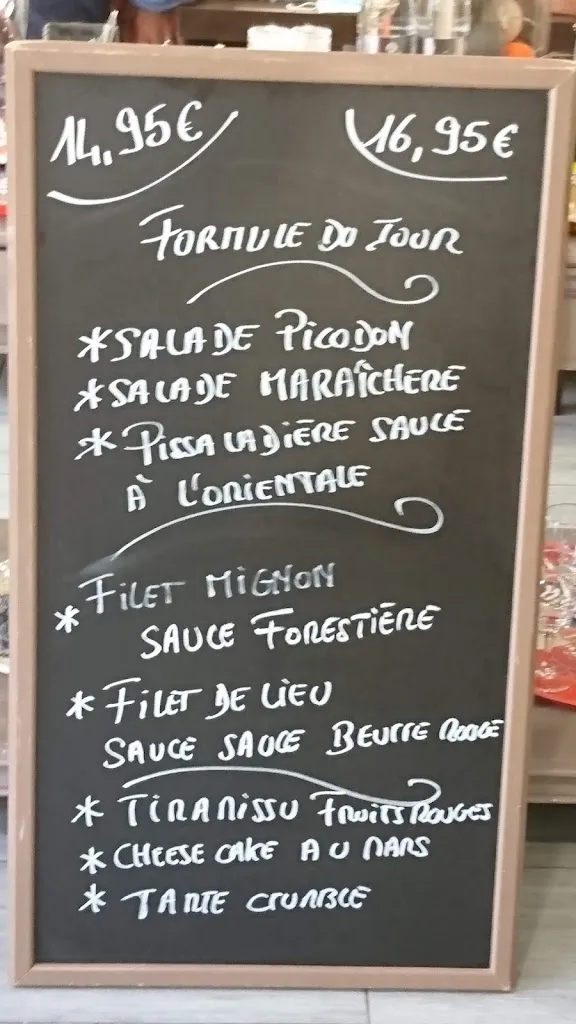 14,95€ 16,95€
FORMULE DU JOUR
*SALADE PICODON
*SALADE MARAÎCHERE
* PISSALADIÈRE SAUCE
À L'ORIENTALE
* FILET MIGNON
SAUCE FORESTIÈRE
* FILET DE LIEU
SAUCE SAUCE BEURRE ROUGE
* TIRAMISSU FRUITS ROUGES
* CHEESE CAKE AU MARS
* TARTE CRUMBLE